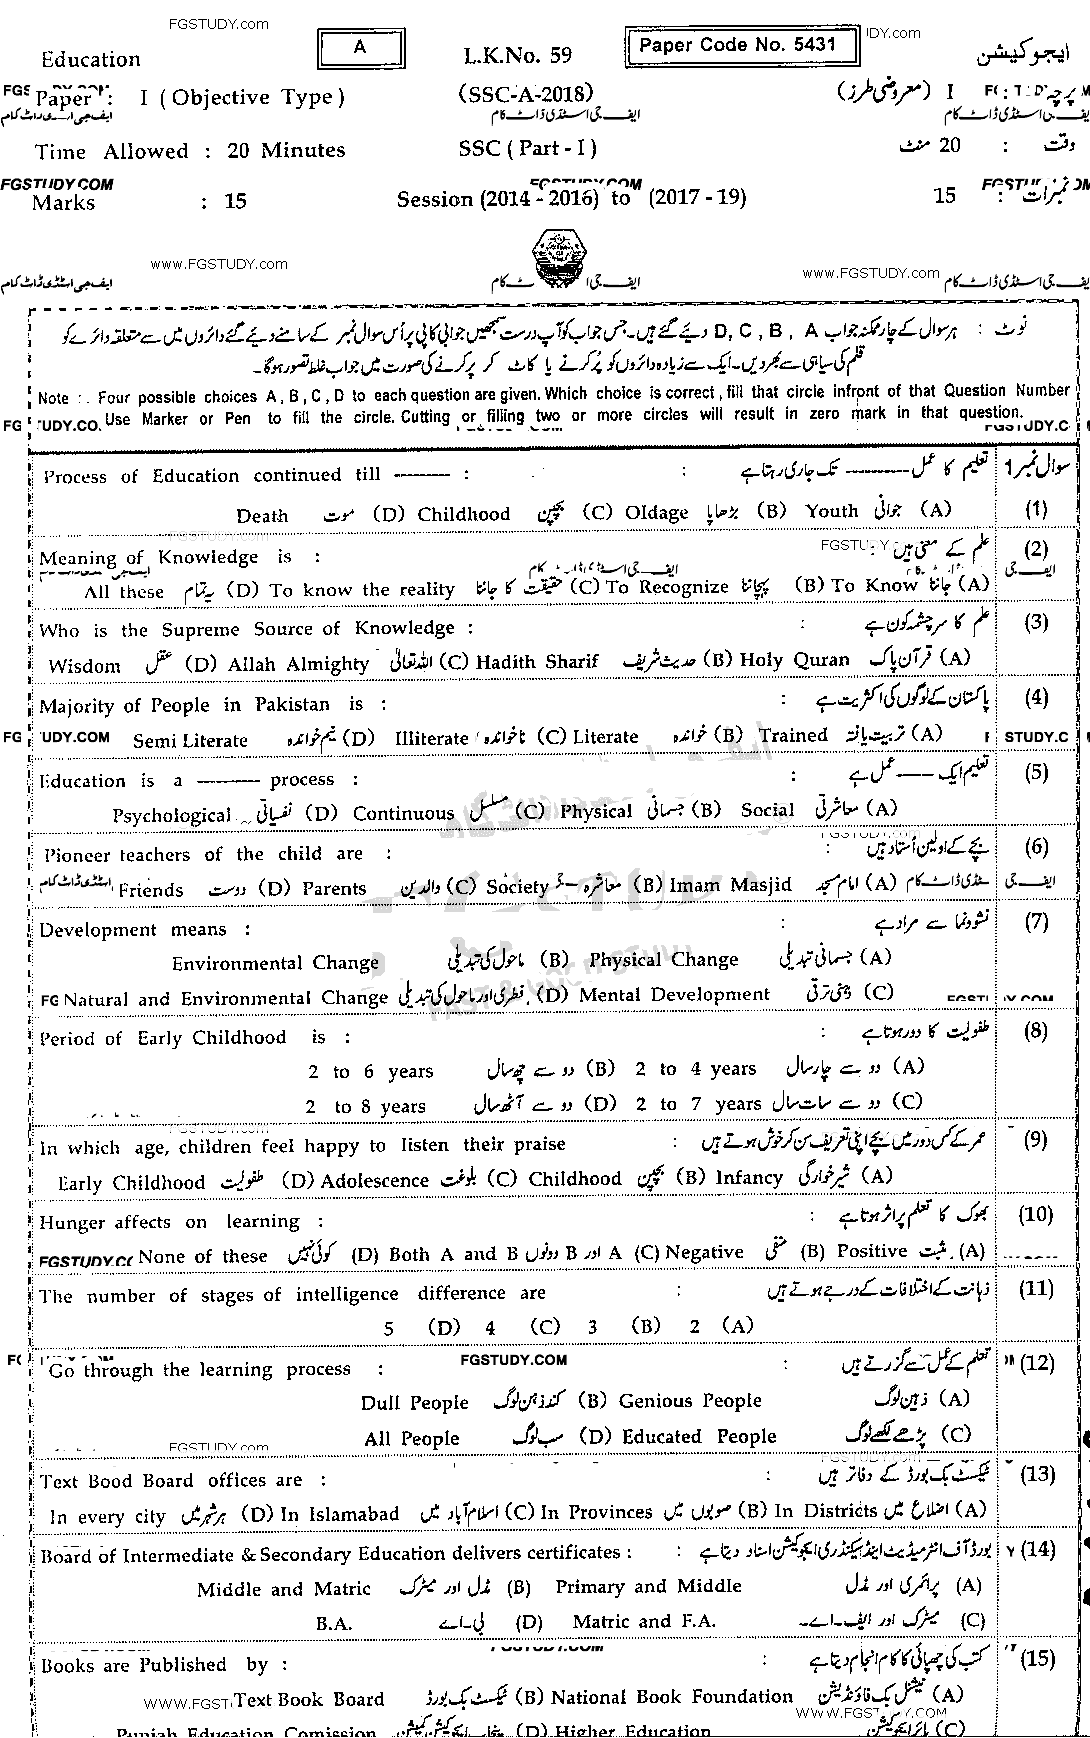 FGSTUDY.com
Education A L.K.No. 59 Paper Code No. 5431 ایجوکیشن
Paper : I ( Objective Type ) (SSC-A-2018) I (معروضی طرز) پرچہ
ایف جی اسٹڈی ڈاٹ کام
Time Allowed : 20 Minutes SSC ( Part - I ) وقت : 20 منٹ
FGSTUDY.COM
Marks : 15 Session (2014 - 2016) to (2017 - 19) نمبرات : 15
www.FGSTUDY.com www.FGSTUDY.com
ایف جی اسٹڈی ڈاٹ کام
نوٹ : ہر سوال کے چار ممکنہ جواب D, C, B, A دیئے گئے ہیں۔ جس جواب کو آپ درست سمجھیں جوابی کاپی پر اُس سوال نمبر کے سامنے دیئے گئے دائروں میں سے متعلقہ دائرے کو
قلم کی سیاہی سے بھر دیں۔ ایک سے زیادہ دائروں کو پُر کرنے یا کاٹ کر پر کرنے کی صورت میں جواب غلط تصور ہوگا۔
Note : . Four possible choices A , B , C , D to each question are given. Which choice is correct , fill that circle infront of that Question Number
Use Marker or Pen to fill the circle. Cutting or filling two or more circles will result in zero mark in that question.
سوال نمبر 1 تعلیم کا عمل ------- تک جاری رہتا ہے : Process of Education continued till ------- :
(1) (A) جوانی Youth (B) بڑھاپا Oldage (C) بچپن Childhood (D) موت Death
(2) علم کے معنی ہیں : Meaning of Knowledge is :
(A) جاننا To Know (B) پہچاننا To Recognize (C) حقیقت کا جاننا To know the reality (D) یہ تمام All these
(3) علم کا سرچشمہ کون ہے : Who is the Supreme Source of Knowledge :
(A) قرآن پاک Holy Quran (B) حدیث شریف Hadith Sharif (C) اللہ تعالیٰ Allah Almighty (D) عقل Wisdom
(4) پاکستان کے لوگوں کی اکثریت ہے : Majority of People in Pakistan is :
(A) تربیت یافتہ Trained (B) خواندہ Literate (C) ناخواندہ Illiterate (D) نیم خواندہ Semi Literate
(5) تعلیم ایک ---- عمل ہے : Education is a ------- process :
(A) معاشرتی Social (B) جسمانی Physical (C) مسلسل Continuous (D) نفسیاتی Psychological
(6) بچے کے اولین اُستاد ہیں : Pioneer teachers of the child are :
(A) امام مسجد Imam Masjid (B) معاشرہ Society (C) والدین Parents (D) دوست Friends
(7) نشوونما سے مراد ہے : Development means :
(A) جسمانی تبدیلی Physical Change (B) ماحول کی تبدیلی Environmental Change
(C) ذہنی ترقی Mental Development (D) فطری اور ماحول کی تبدیلی Natural and Environmental Change
(8) طفولیت کا دور ہوتا ہے : Period of Early Childhood is :
(A) دو سے چار سال 2 to 4 years (B) دو سے چھ سال 2 to 6 years
(C) دو سے سات سال 2 to 7 years (D) دو سے آٹھ سال 2 to 8 years
(9) عمر کے کس دور میں بچے اپنی تعریف سن کر خوش ہوتے ہیں : In which age, children feel happy to listen their praise
(A) شیر خوارگی Infancy (B) بچپن Childhood (C) بلوغت Adolescence (D) طفولیت Early Childhood
(10) بھوک کا تعلم پر اثر ہوتا ہے : Hunger affects on learning :
(A) مثبت Positive (B) منفی Negative (C) A اور B دونوں Both A and B (D) کوئی نہیں None of these
(11) ذہانت کے اختلافات کے درجے ہوتے ہیں : The number of stages of intelligence difference are
(A) 2 (B) 3 (C) 4 (D) 5
(12) تعلم کے عمل سے گزرتے ہیں : Go through the learning process :
FGSTUDY.COM
(A) ذہین لوگ Genious People (B) کند ذہن لوگ Dull People
(C) پڑھے لکھے لوگ Educated People (D) سب لوگ All People
(13) ٹیکسٹ بک بورڈ کے دفاتر ہیں : Text Bood Board offices are :
(A) اضلاع میں In Districts (B) صوبوں میں In Provinces (C) اسلام آباد میں In Islamabad (D) ہر شہر میں In every city
(14) بورڈ آف انٹرمیڈیٹ اینڈ سیکنڈری ایجوکیشن اسناد دیتا ہے : Board of Intermediate & Secondary Education delivers certificates :
(A) پرائمری اور مڈل Primary and Middle (B) مڈل اور میٹرک Middle and Matric
(C) میٹرک اور ایف۔اے۔ Matric and F.A. (D) بی۔اے B.A.
(15) کتب کی چھپائی کا کام انجام دیتا ہے : Books are Published by :
(A) نیشنل بک فاؤنڈیشن National Book Foundation (B) ٹیکسٹ بک بورڈ Text Book Board
(C) ہائر ایجوکیشن Higher Education (D) پنجاب ایجوکیشن کمیشن Punjab Education Comission